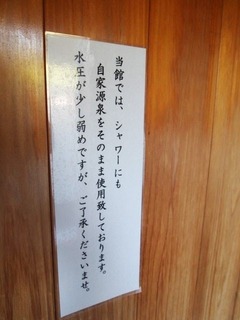 当館では、シャワーにも
自家源泉をそのまま使用致しております。
水圧が少し弱めですが、ご了承くださいませ。